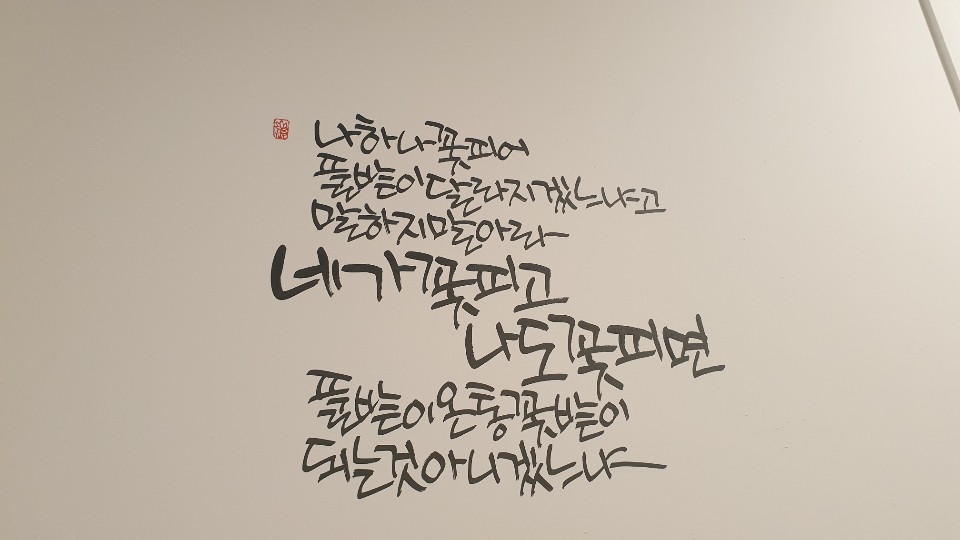 나 하나 꽃피어
풀밭이 달라지겠느냐고
말하지 말아라
네가 꽃피고
나도 꽃피면
풀밭이 온통 꽃밭이
되는 것 아니겠느냐